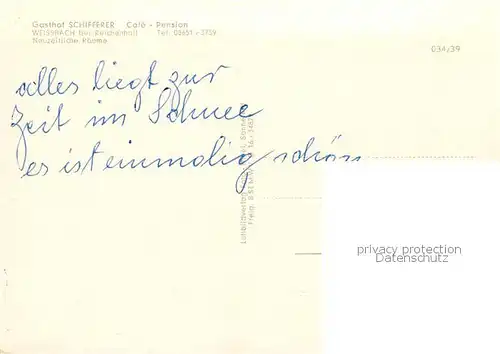 Gasthof SCHIFFERER Café - Pension
WEISSBACH bei Reichenhall Tel. 08651 - 3759
Neuzeitliche Räume
034/39
alles liegt zur
Zeit im Schnee
es ist einmalig schön
privacy protection
Datenschutz